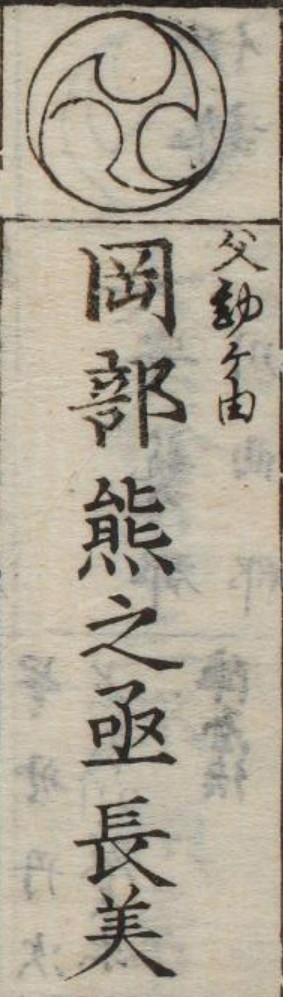 父勤ケ由
岡部熊之亟長美